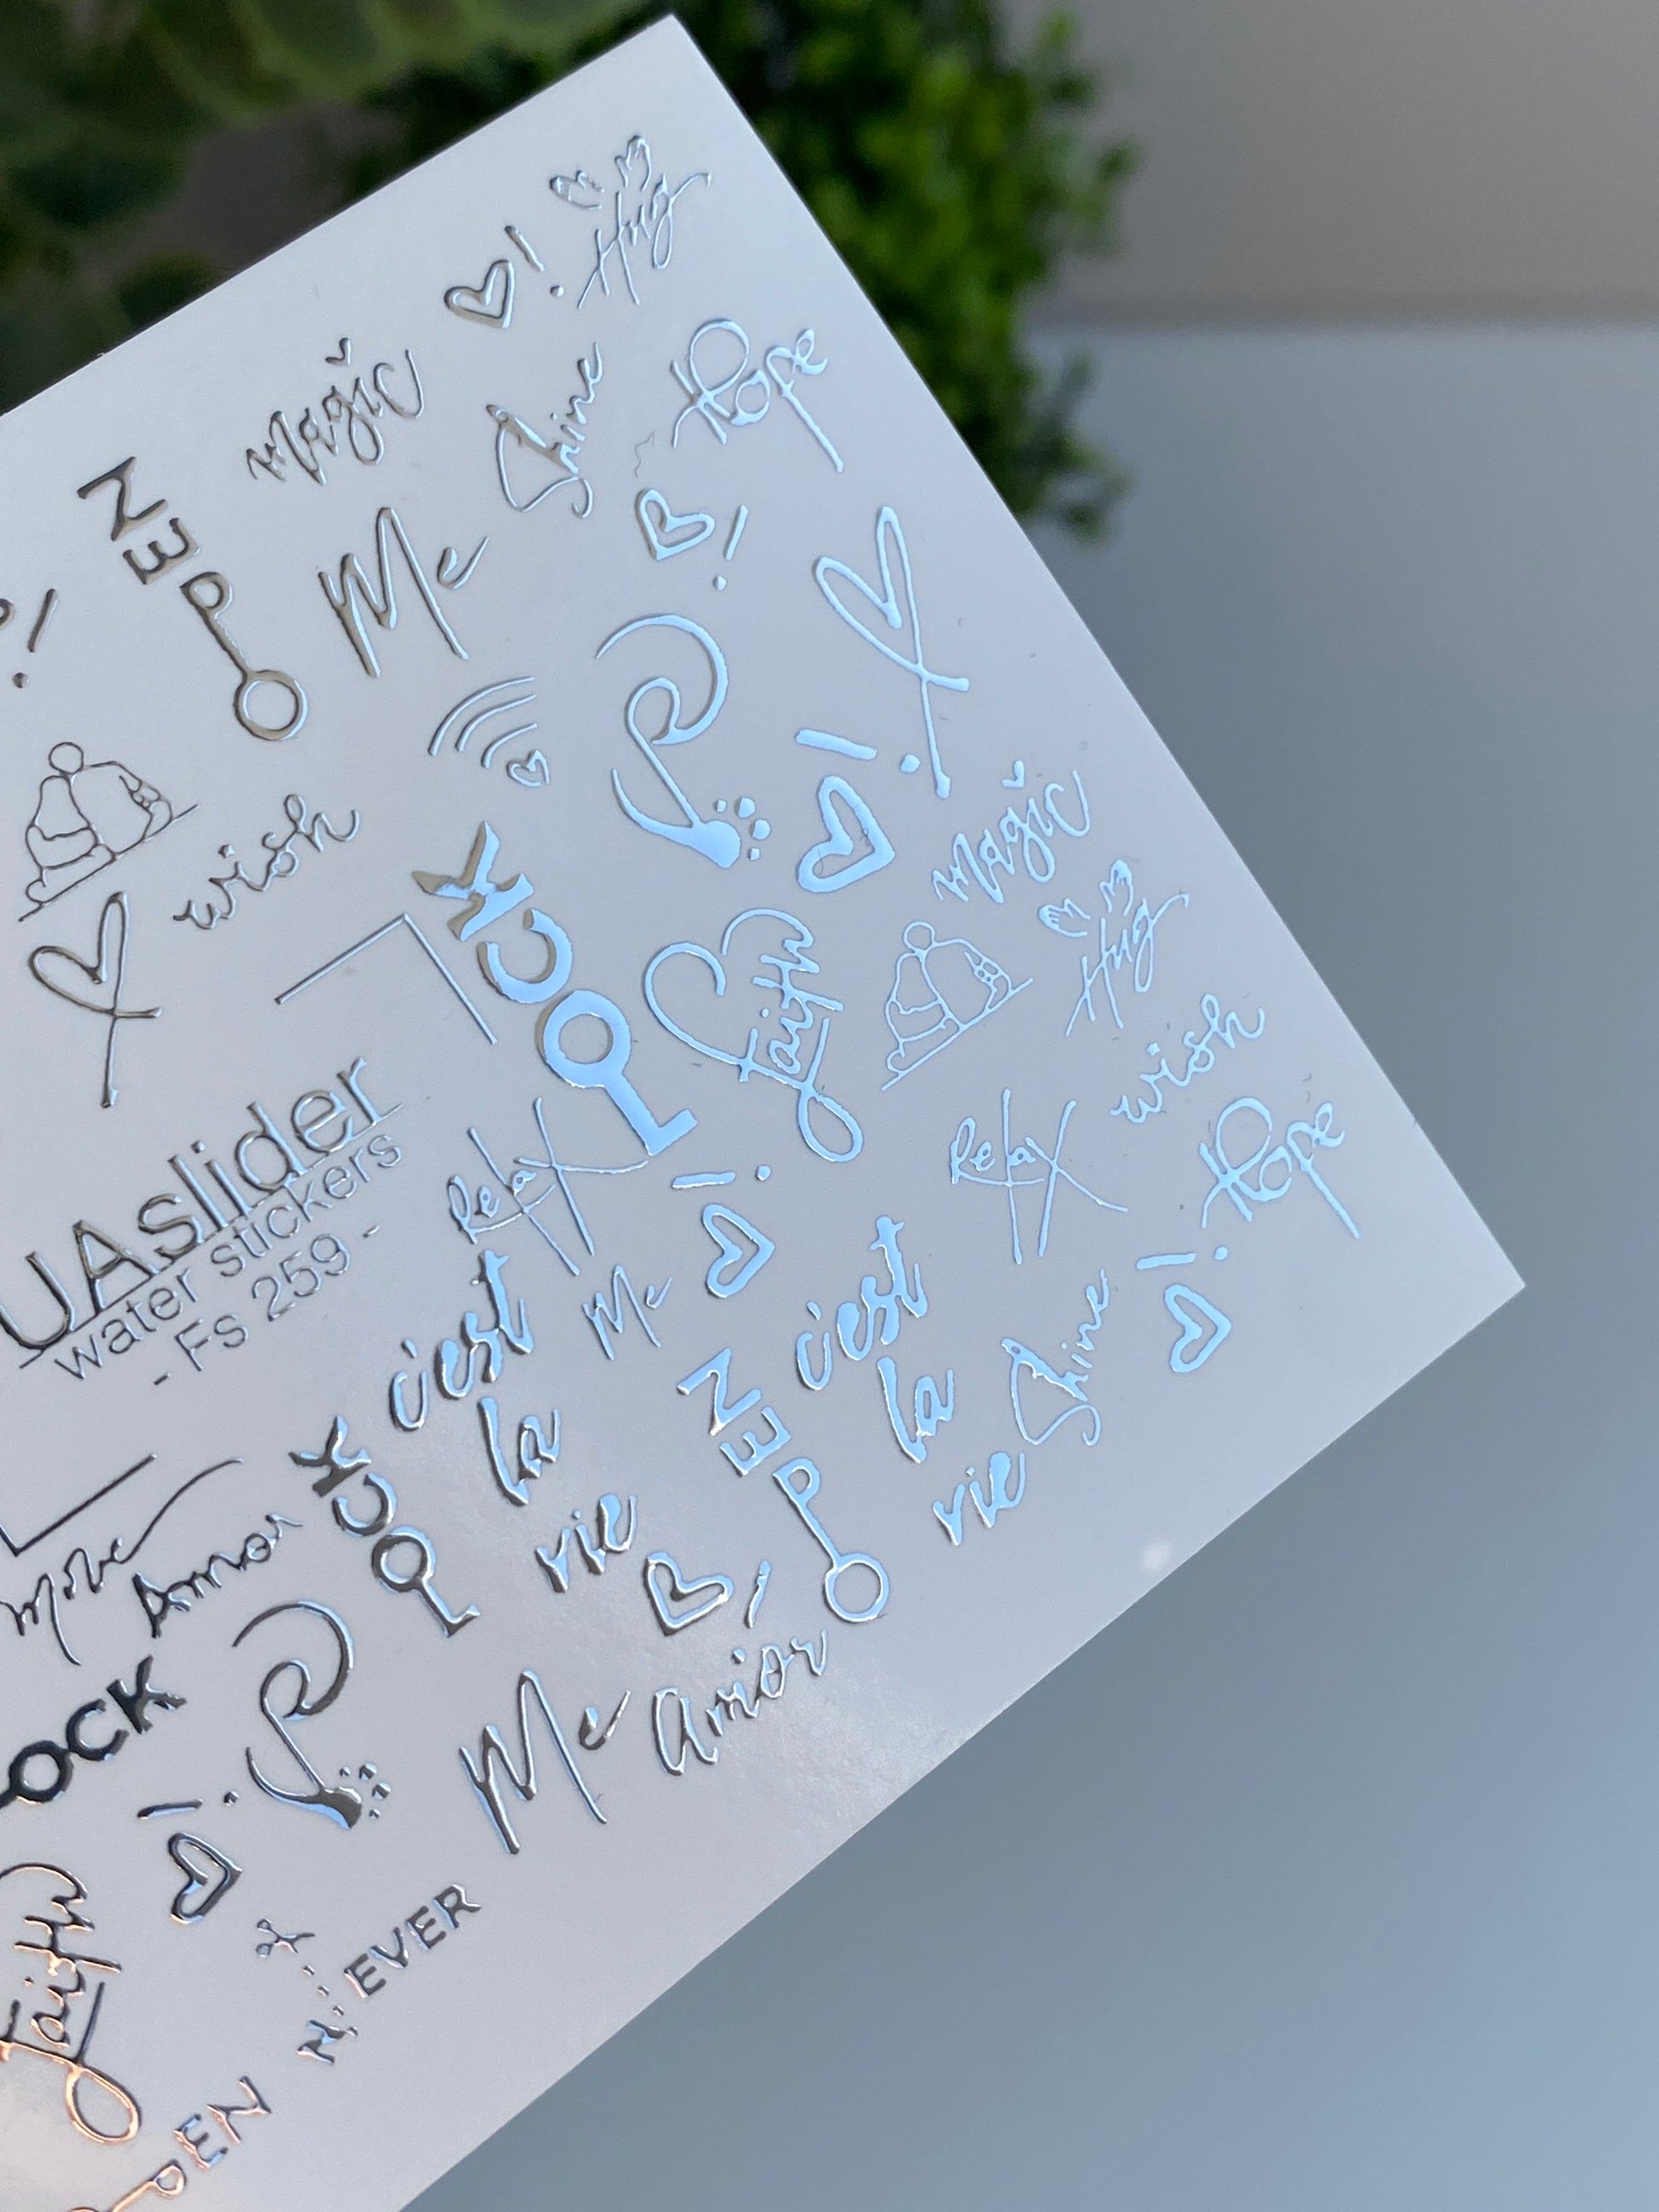 Hug
!
magic
Shine
Hope
NEPO
Me
!
!
wish
LOCK
!
magic
faith
Hug
wish
UAslider
water stickers
- Fs 259 -
Relax
!
Relax
Hope
c'est
la
vie
Me
c'est
la
vie
Shine
!
NEPO
More
Amor
LOCK
!
OCK
Me
amor
!
faith
N EVER
OPEN